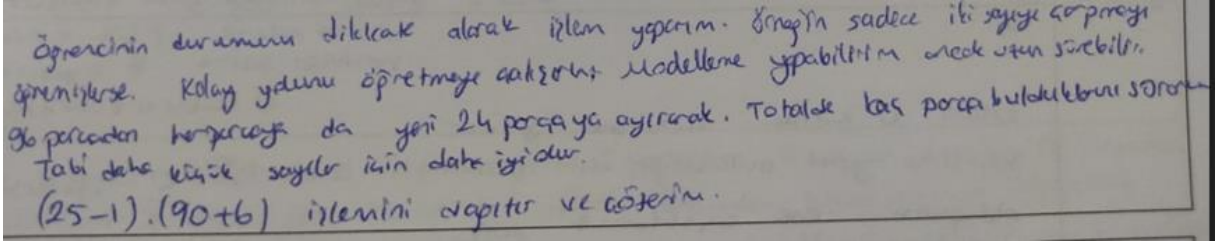 Öğrencinin durumunu dikkate alarak işlem yaparım. Örneğin sadece iki sayıyı çarpmayı
öğrenmişlerse. Kolay yolunu öğretmeye çalışırım. Modelleme yapabilirim ancak uzun sürebilir.
96 parçadan her parçayı da yeni 24 parçaya ayırarak. Totalde kaç parça bulduklarını sorarım
Tabi daha küçük sayılar için daha iyi olur.
(25-1).(90+6) işlemini yaptırır ve